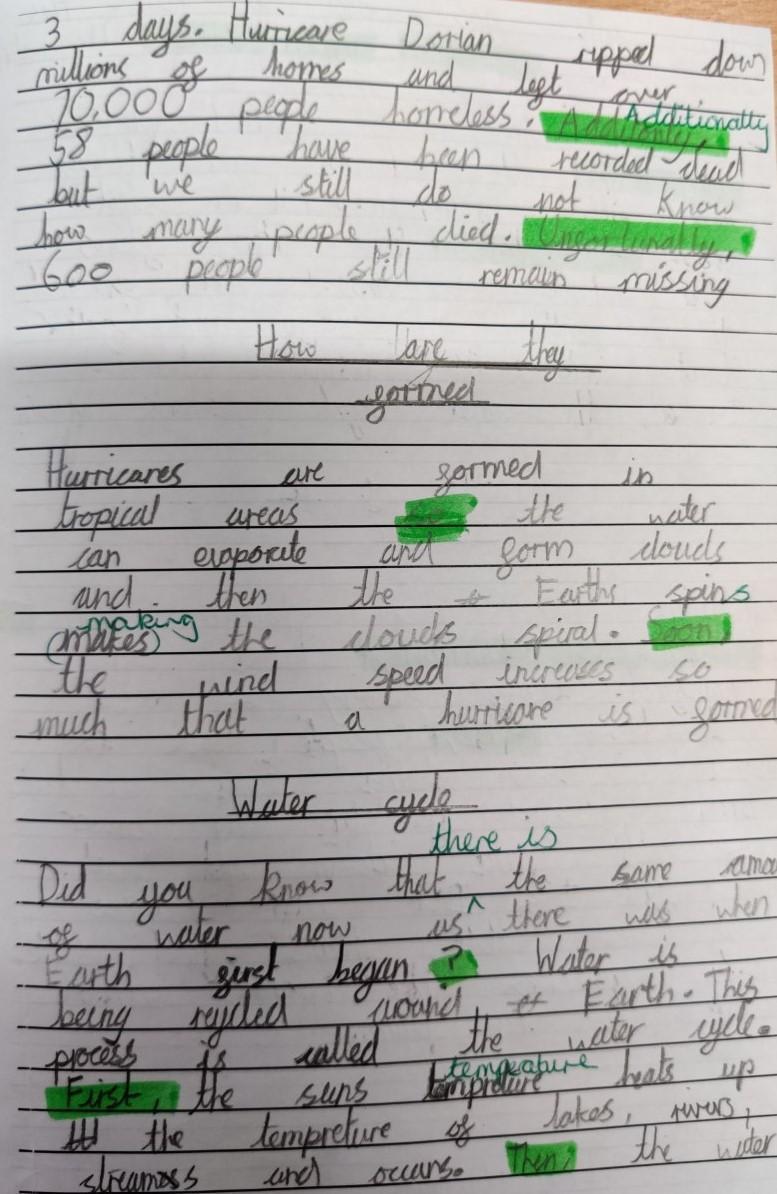 3 days. Hurricare Dorian ripped down
millions of homes and left over
70,000 people homeless. Additionally
58 people have been recorded dead
but we still do not know
how many people died. Ungortunally,
600 people still remain missing
How are they
formed
Hurricares are formed in
tropical areas so the water
can evaporate and form clouds
and then the Earths spins
making
(makes) the clouds spiral. Soon,
the wind speed increases so
much that a hurricare is formed
Water cycle
there is
Did you know that the same amou
of water now as ^ there was when
Earth first began ? Water is
being reycled around Earth. This
process is called the water cycle.
temperature
First, the suns tempreture heats up
the tempreture of lakes, rivers,
streamoss and occurs. Then, the water